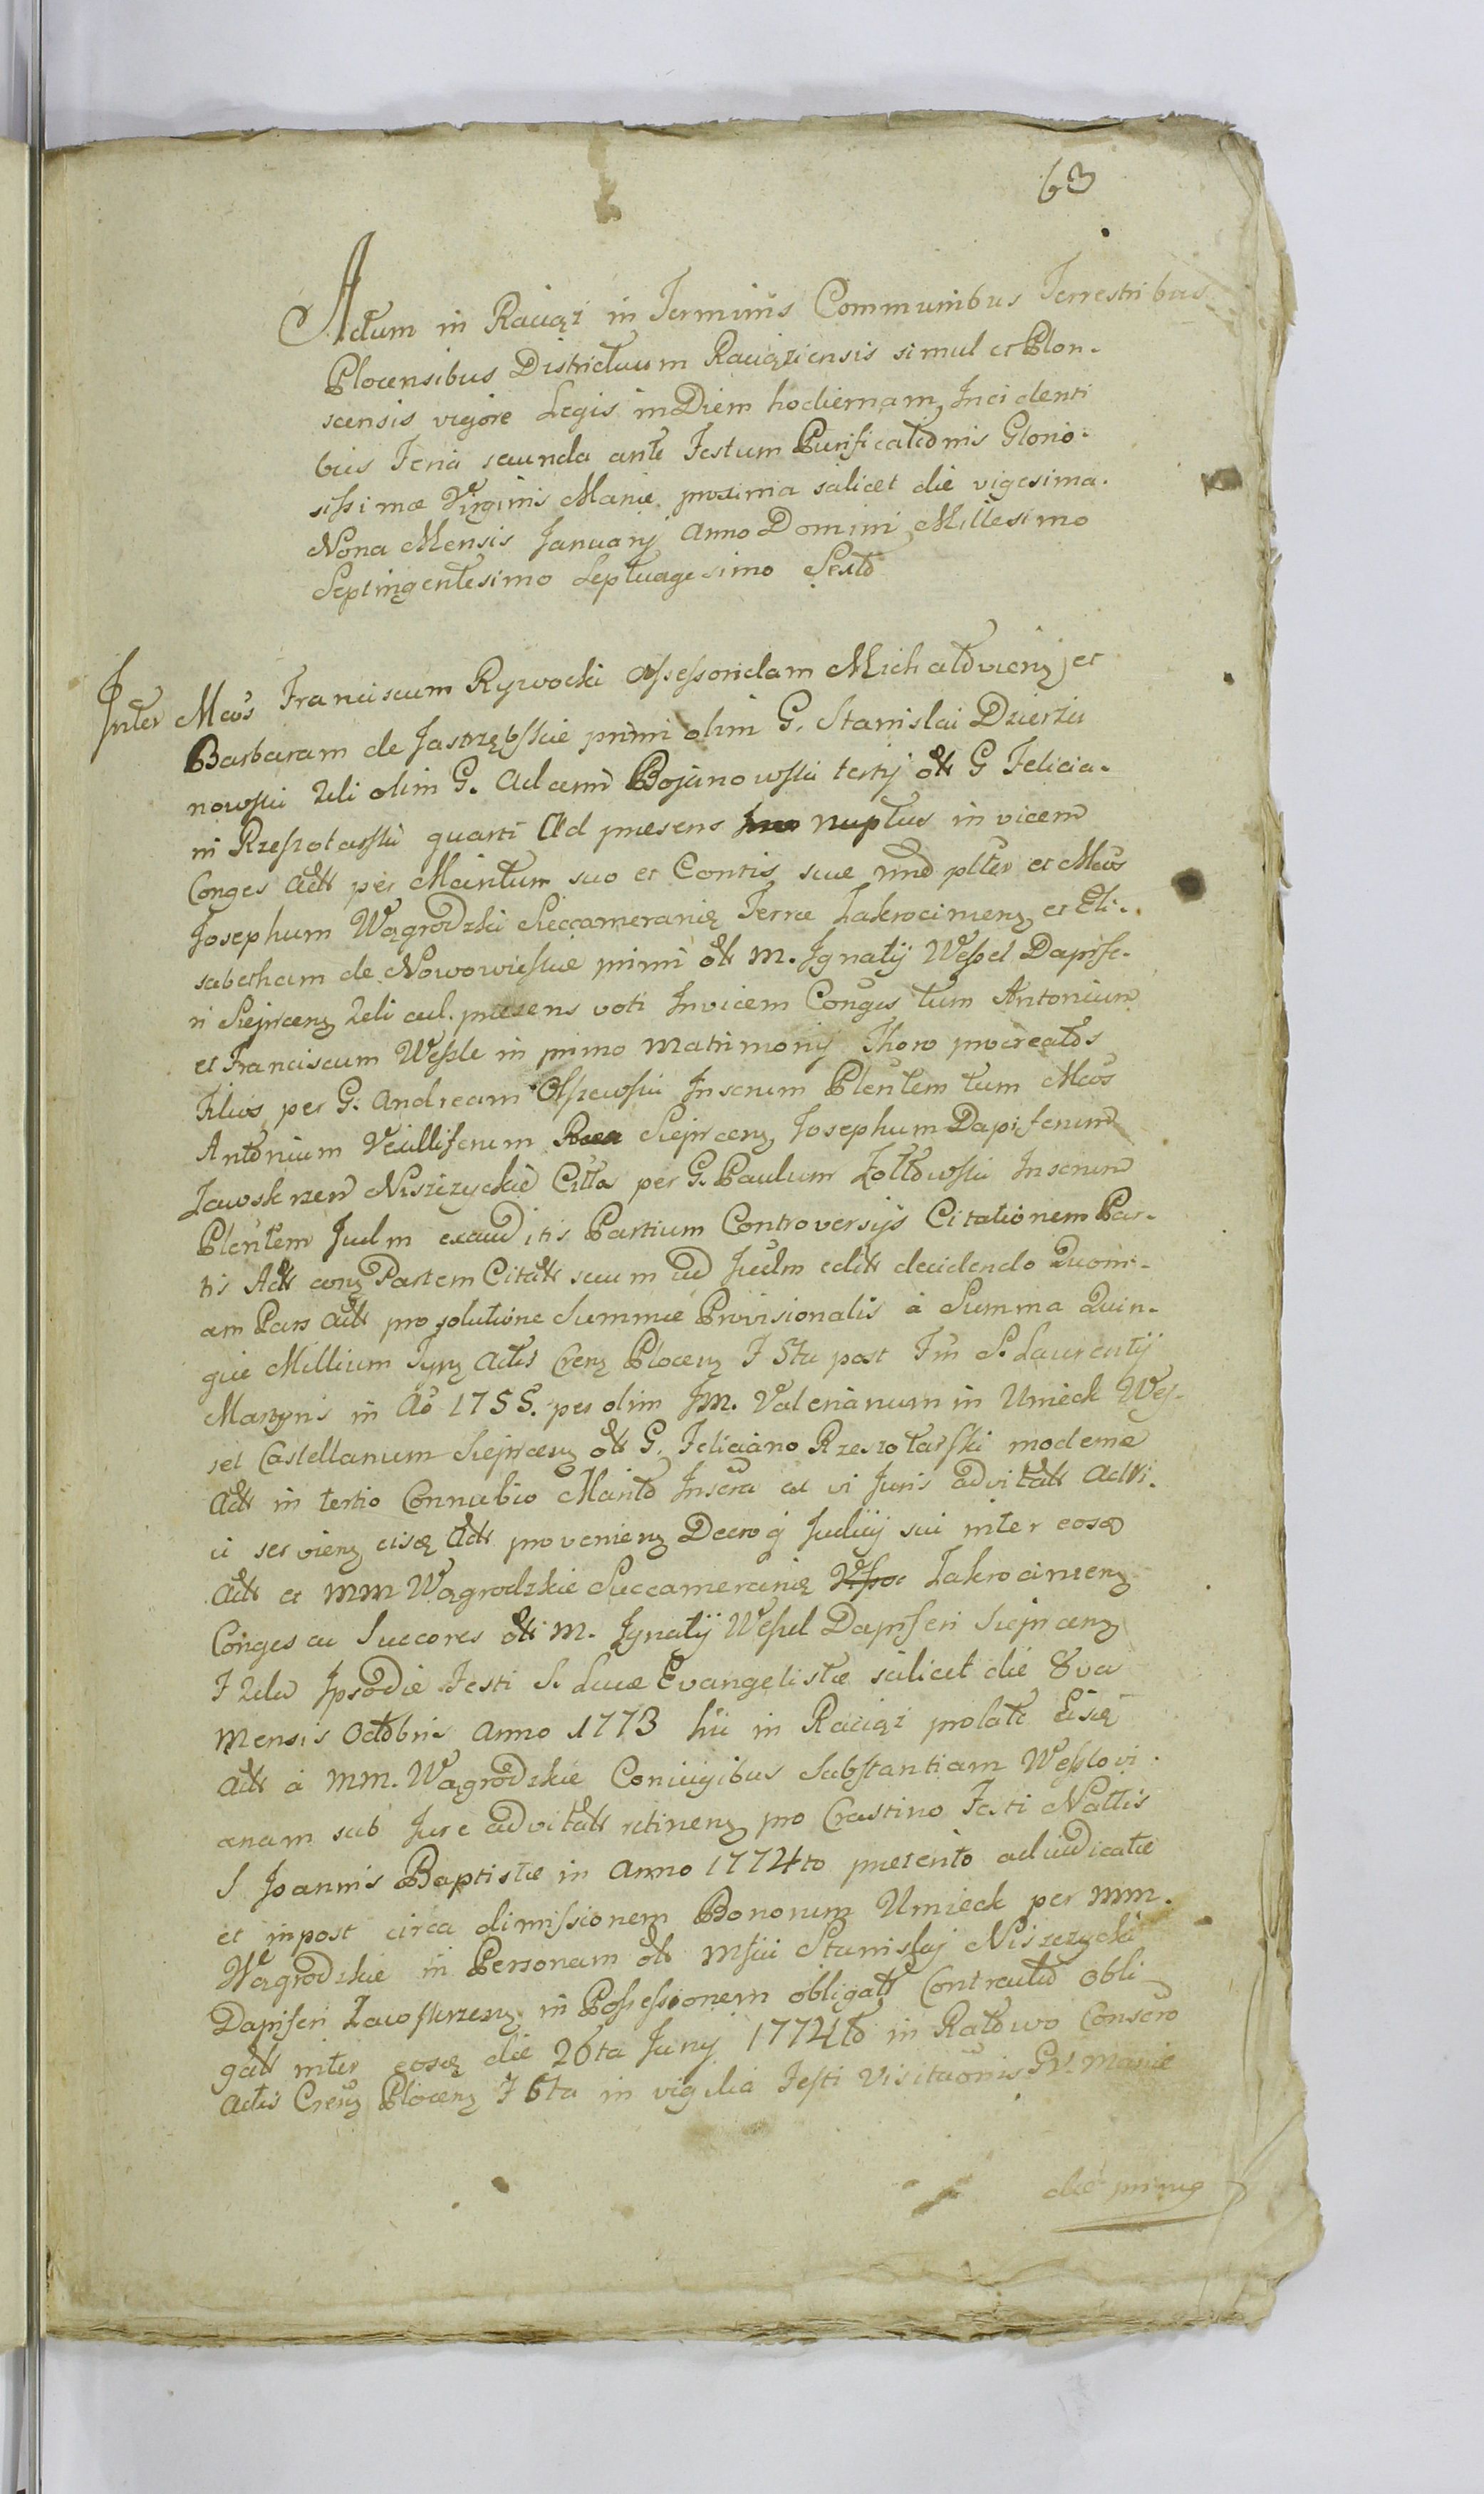 63
Actum in Raciąż in Terminis Communibus Terrestribus
Plocensibus Districtuum Raciąziensis simul et Plon-
scensis vigore Legis in Diem hodiernam Incidenti
bus Feria secunda ante Festum Purificationis Glorio-
sissimæ Virginis Mariæ proxima scilicet die vigesima
Nona Mensis Januarij Anno Domini Millesimo
Septingentesimo Septuagesimo Sexto
Inter Mcos Franciscum Rywocki Assessoridam Michałoviens et
Barbaram de Jastrzębskie primi olim G. Stanislai Dzierża
nowski 2di olim G. Adami Bojanowski tertij olt G Felicia-
ni Rzeszotarski quarti ad præsens nuptus invicem
Conges Actt per Maritum suo et Consortis suæ nne plter et Mcos
Josephum Wągrodzki Succamerarię Terræ Zakrocimens et Eli-
sabetham de Nowowieskie primi olt M. Ignatij Wessel Dapife-
ri Sieprcens 2di ad præsens voti Invicem Conges tum Antonium
et Franciscum Wessle in primo Matrimonij Thoro procreatos
Filios per G. Andream Olszewski Inserum Plentem tum Mcos
Antonium Vexilliferum Sieprcens Josephum Dapiferum
Zawoskrzen Niszczyckie Citta per G. Paulum Żółtowski Inserum
Plentem Judm exauditis Partium Controversijs Citationem Par-
tis Actt cons Partem Citatt secum ad Judm editt decidendo Quoni-
am Pars Actt pro solutione Summæ Provisionalis à Summa Quin-
que Millium Tyns Actis Crens Plocens F 5ta post Fm S. Laurentij
Martyris in Ao 1755. per olim JM. Valerianum in Unieck Wes-
sel Castellanum Sieprcens olt G. Feliciano Rzeszotarski modernæ
Actt in tertio Connubio Marito Inscra ac vi Juris advitatt Actri-
ci serviens eisq Actt proveniens Decro q Judicij sui inter eosq
Actt et MM Wągrodzkie Succamerarię Zakrocimens
Conges ac Succores olti M. Ignatij Wessel Dapiferi Sieprcens
F 2da Ipsodie Festi S. Lucæ Evangelistæ scilicet die 8va
Mensis Octobris Anno 1773 hii in Raciąż prolate Eisq
Actt à MM. Wągrodzkie Coniugibus Substantiam Wesslovi
anam sub Jure advitatt retinens pro Crastino Festi Nattis
S Joannis Baptistæ in Anno 1774to præterito adiudicatæ
et inpost circa dimissionem Bonorum Unieck per MM.
Wągrodzkie in Personam olt Msci Stanislaj Niszczycki
Dapiferi Zawoskrzens in Possessionem obligatt Contractu obli
gatt inter eosq die 26ta Junij 1774to in Ratowo Conscro
Actis Crens Plocens F 6ta in vigilia Festi Visitaonis GV. Mariæ
die prima